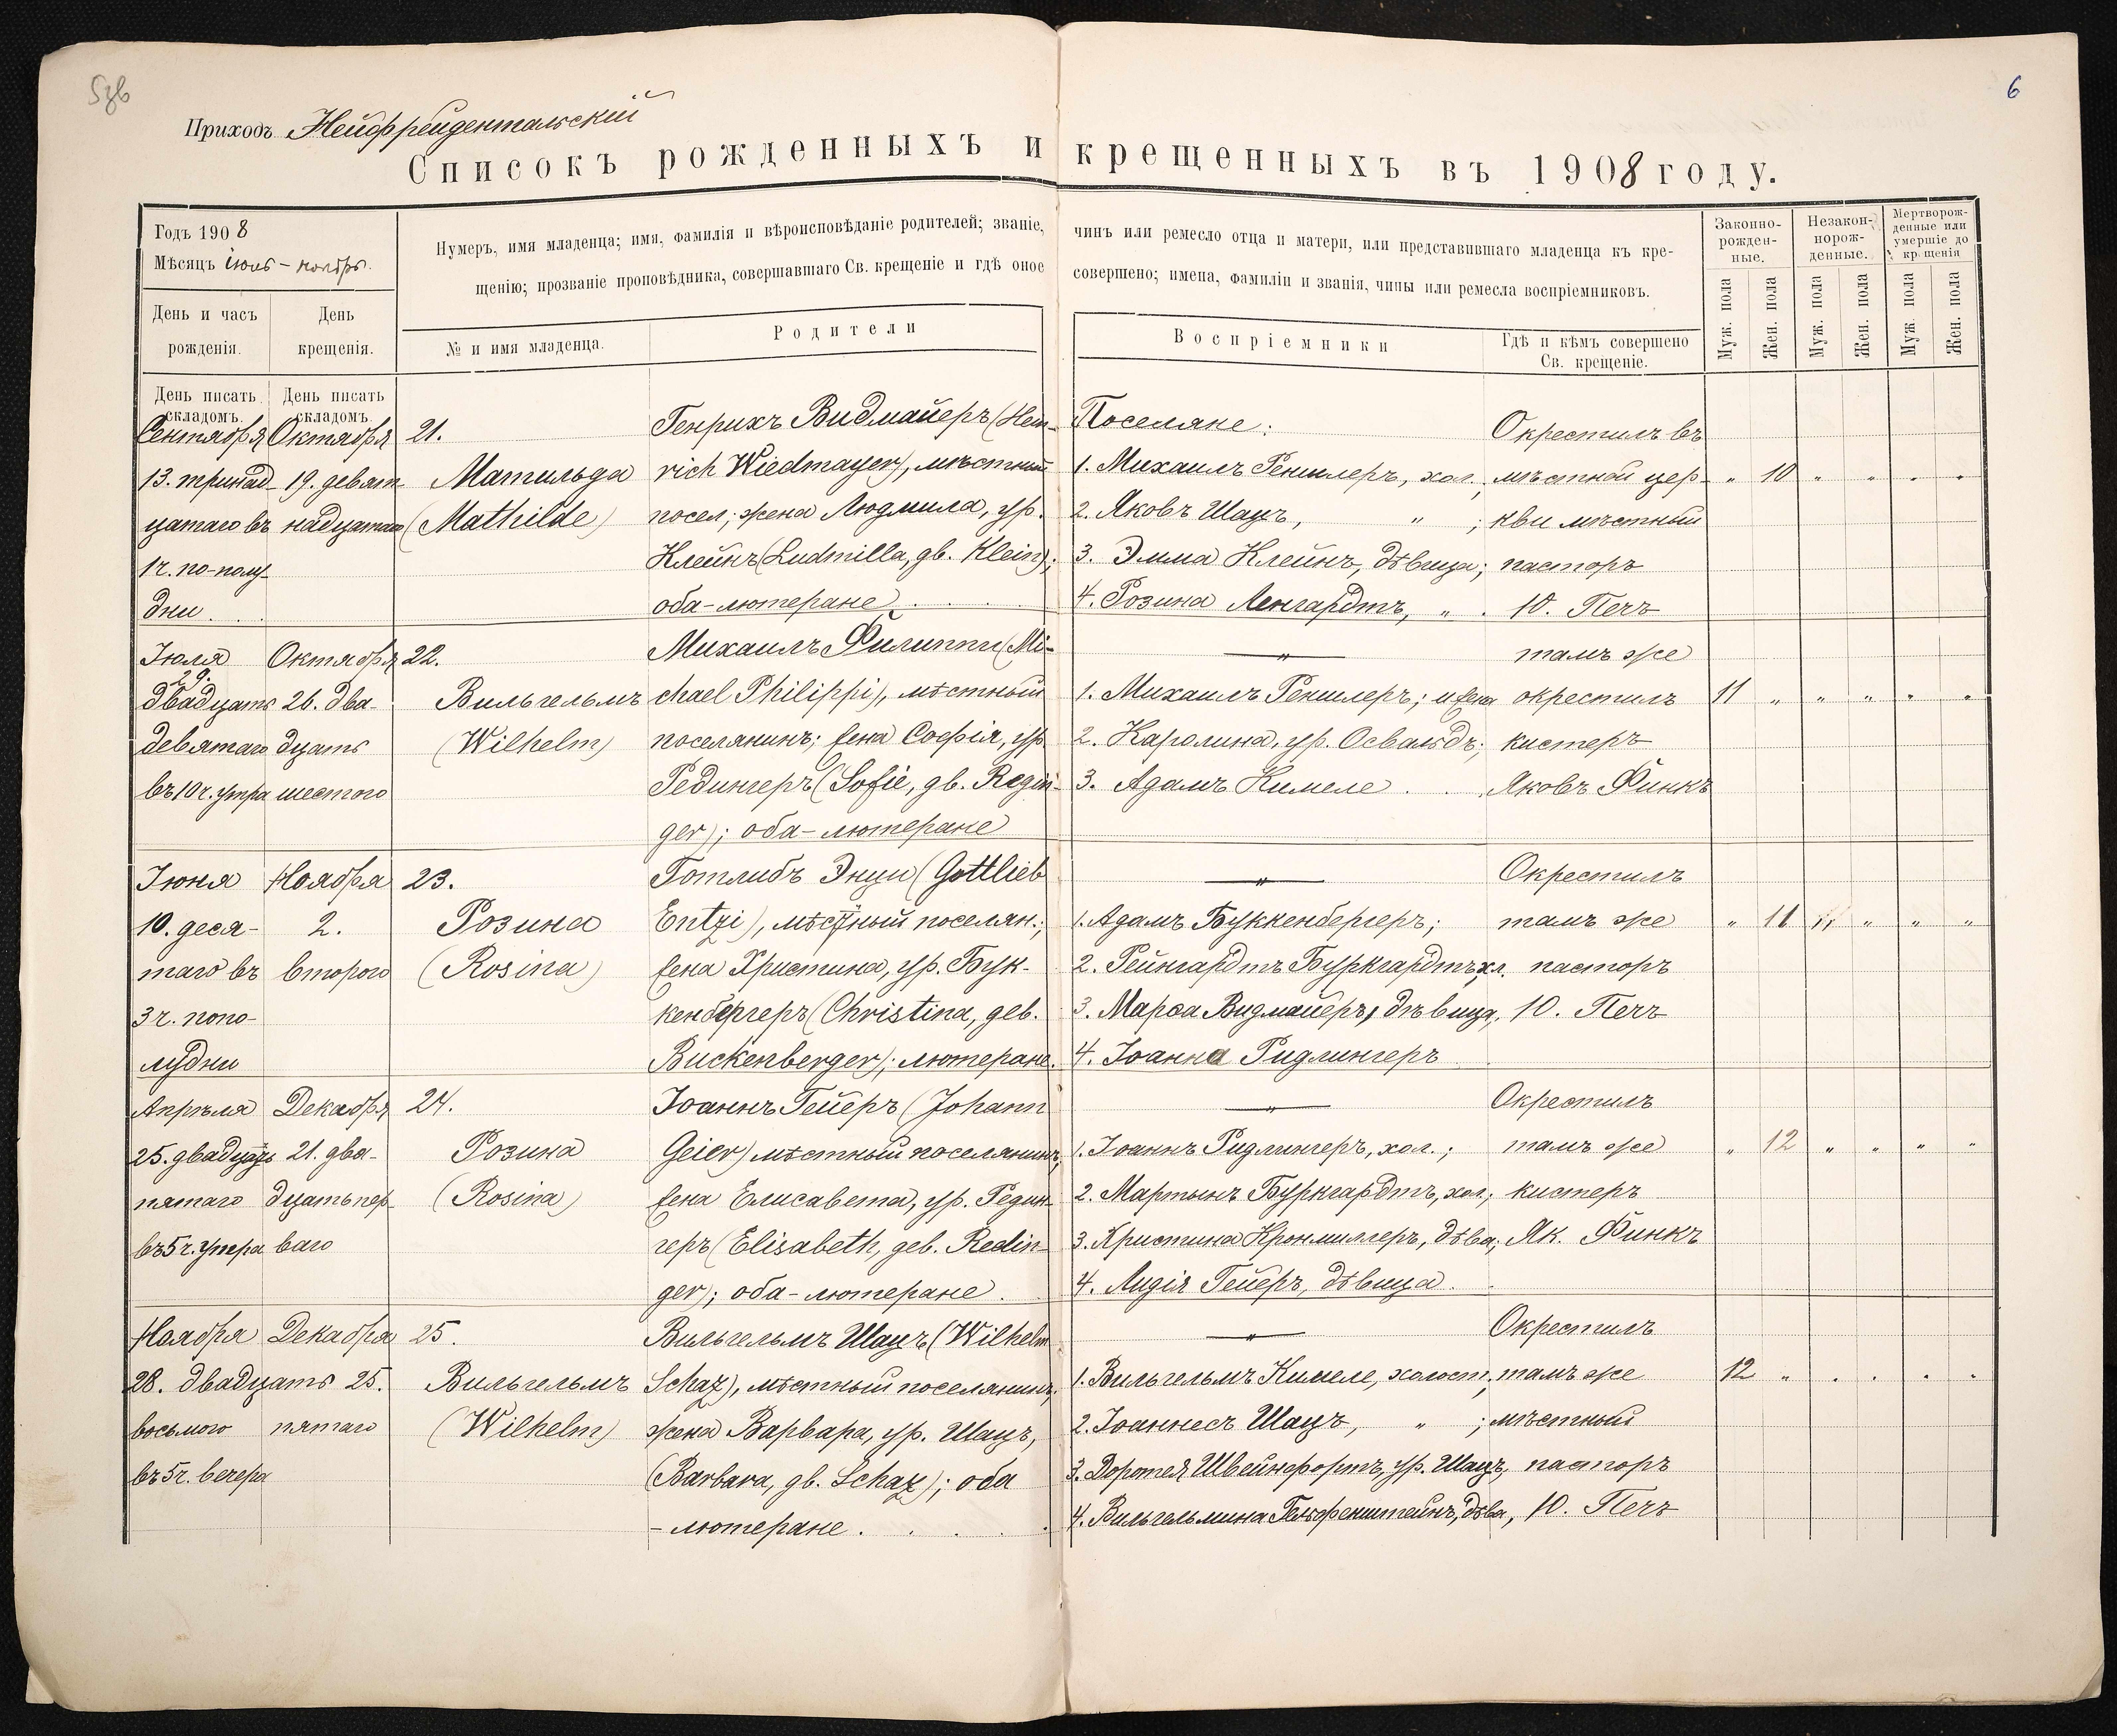 5зв
6
Приходъ Нейфрейдентальскій
Списокъ рожденныхъ и крещенныхъ въ 1908 году.
Годъ 1908
Мѣсяцъ іюнь - ноябрь.
День и часъ рожденія.
День крещенія.
Нумеръ, имя младенца; имя, фамилія и вѣроисповѣданіе родителей; званіе, чинъ или ремесло отца и матери, или представившаго младенца къ кре-
щенію; прозваніе проповѣдника, совершавшаго Св. крещеніе и гдѣ оное совершено; имена, фамиліи и званія, чины или ремесла воспріемниковъ.
№ и имя младенца.
Родители
Воспріемники
Гдѣ и кѣмъ совершено
Св. крещеніе.
Законно-
рожден-
ные.
Незакон-
норож-
денные.
Мертворож-
денные или
умершіе до
крещенія
Муж. пола
Жен. пола
Муж. пола
Жен. пола
Муж. пола
Жен. пола
День писать складомъ.
День писать складомъ.
Сентября Октября 21. Генрихъ Видмайеръ (Hein- Поселяне: Окрестилъ въ
13. тринад- 19. девят- Матильда rich Wiedmayer), мѣстный 1. Михаилъ Рекшлеръ, хол.; мѣстной цер- " 10 " " " "
цатаго въ надцатаго (Mathilde) посел; жена Людмила, ур. 2. Яковъ Шацъ, " ; кви мѣстный
1ч. по-полу- Клейнъ (Ludmilla, gb. Klein); 3. Эмма Клейнъ, дѣвица; пасторъ
дни. оба-лютеране 4. Розина Ленгардтъ, " . Ю. Печъ
Іюля Октября 22. Михаилъ Филиппи (Mi- " тамъ же
29. двадцать 26. два- Вильгельмъ chael Philippi), мѣстный 1. Михаилъ Рекшлеръ; и жена окрестилъ 11 " " " " "
девятаго дцать (Wilhelm) поселянинъ; жена Софія, ур. 2. Каролина, ур. Освальдъ; кистеръ
въ 10ч. утра шестого Редингеръ (Sofie, gb. Regin- 3. Адамъ Кимеле . . Яковъ Финкъ
ger); оба-лютеране
Іюня Ноября 23. Готлибъ Энци (Gottlieb " Окрестилъ
10. деся- 2. Розина Entzi), мѣстный поселян.; 1. Адамъ Буккенбергеръ; тамъ же " 11 " " "
таго въ второго (Rosina) жена Христина, ур. Бук- 2. Рейнгардтъ Буркгардтъ, хл. пасторъ
3ч. попо- кенбергеръ (Christina, geb. 3. Марѳа Видмайеръ, дѣвица, Ю. Печъ
лудни Buckenberger); лютеране. 4. Іоанна Ридлингеръ
Апрѣля Декабря 24. Іоаннъ Гейеръ (Johann " Окрестилъ
25. двадцать 21. два- Розина Geier) мѣстный поселянинъ; 1. Іоаннъ Ридлингеръ, хол.; тамъ же " 12 " " " "
пятаго дцать пер- (Rosina) жена Елисавета, ур. Редин- 2. Мартынъ Буркгардтъ, хол.; кистеръ
въ 5ч. утра ваго геръ (Elisabeth, geb. Redin- 3. Христина Кронмиллеръ, дѣва; Як. Финкъ
ger); оба-лютеране. 4. Лидія Гейеръ, дѣвица.
Ноября Декабря 25. Вильгельмъ Шацъ (Wilhelm " Окрестилъ
28. двадцать 25. Вильгельмъ Schaz), мѣстный поселянинъ; 1. Вильгельмъ Кимеле, холост; тамъ же 12 " . . . "
восьмого пятаго (Wilhelm) жена Варвара, ур. Шацъ, 2. Іоаннесъ Шацъ, " ; мѣстный
въ 5ч. вечера (Barbara, gb. Schaz); оба 3. Доротея Швейнфортъ, ур. Шацъ, пасторъ
- лютеране. 4. Вильгельмина Гельфенштейнъ, дѣва, Ю. Печъ